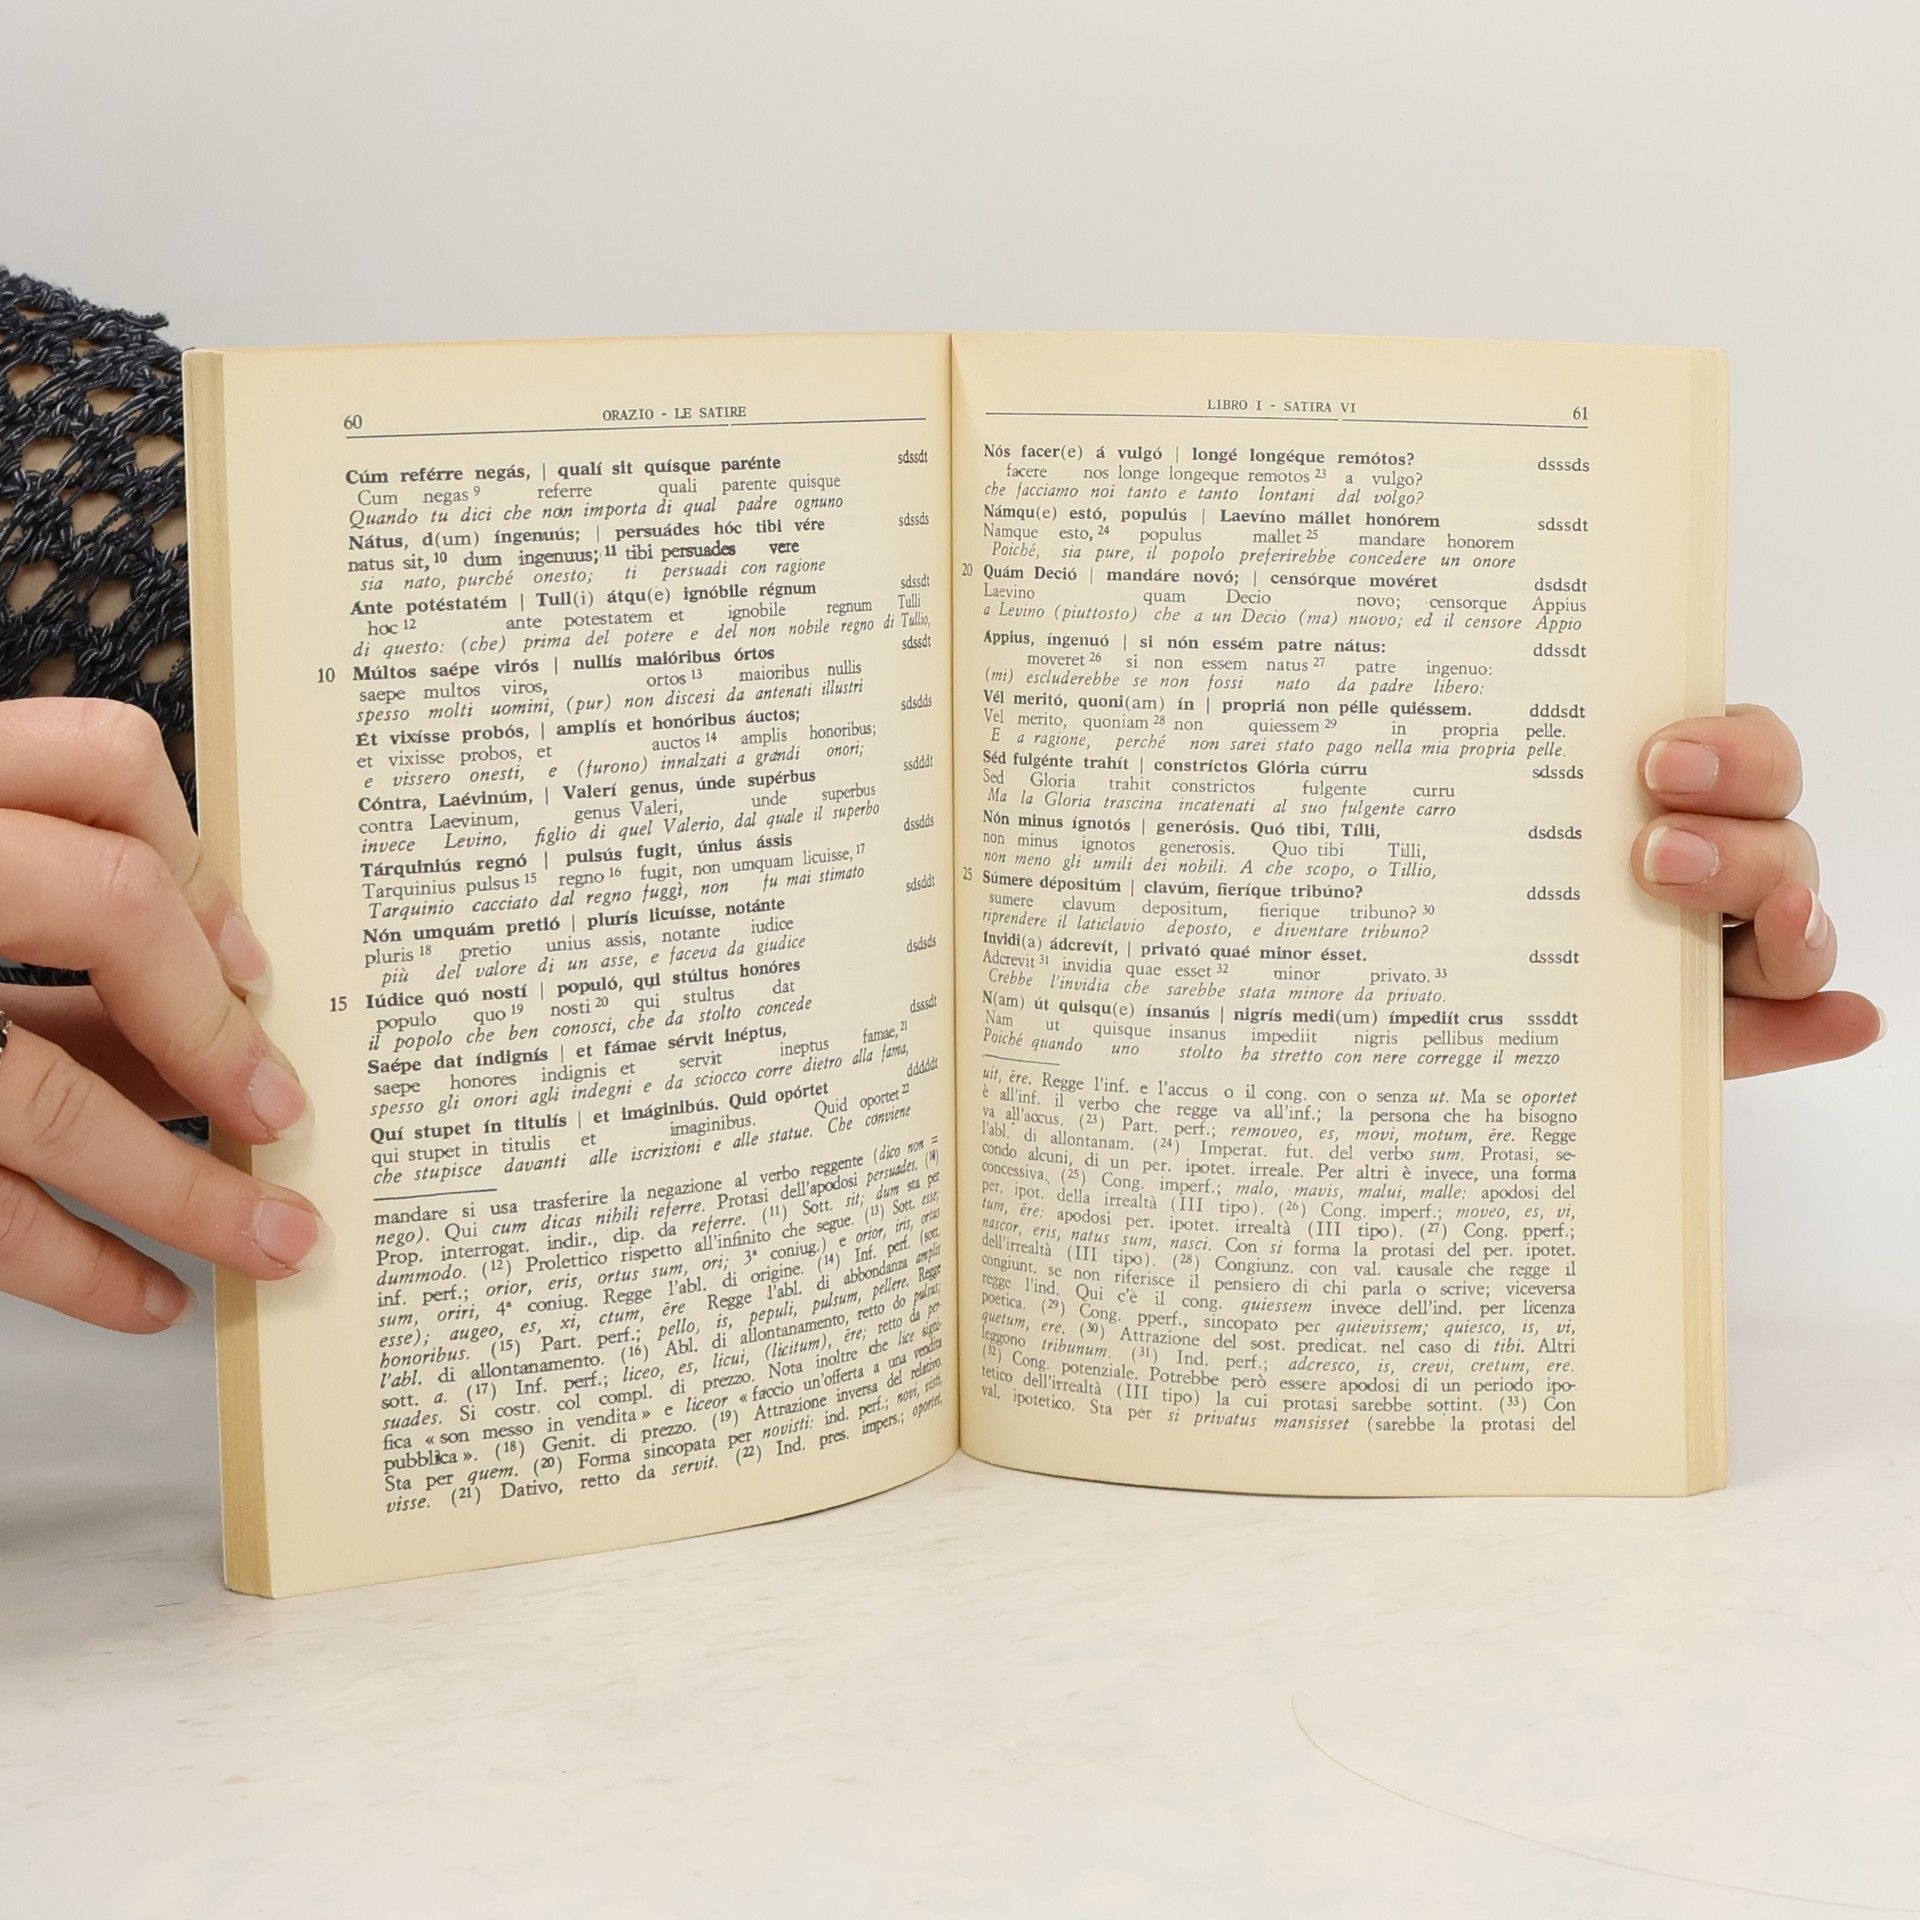 60
ORAZIO - LE SATIRE
Cúm reférre negás, | qualí sit quísque parénte sdssdt
Cum negas ⁹ referre quali parente quisque
Quando tu dici che non importa di qual padre ognuno
Nátus, d(um) íngenuús; | persuádes hóc tibi vére sdssds
natus sit,¹⁰ dum ingenuus;¹¹ tibi persuades vere
sia nato, purché onesto; ti persuadi con ragione
Ante potéstatém | Tull(i) átqu(e) ignóbile régnum sdssdt
hoc ¹² ante potestatem et ignobile regnum Tulli
di questo: (che) prima del potere e del non nobile regno di Tullio,
10 Múltos saépe virós | nullís maióribus órtos sdssdt
saepe multos viros, ortos ¹³ maioribus nullis
spesso molti uomini, (pur) non discesi da antenati illustri
Ét vixísse probós, | amplís et honóribus áuctos; sdsdds
et vixisse probos, et auctos ¹⁴ amplis honoribus;
e vissero onesti, e (furono) innalzati a grandi onori;
Cóntra, Laévinúm, | Valerí genus, únde supérbus ssdddt
contra Laevinum, genus Valeri, unde superbus
invece Levino, figlio di quel Valerio, dal quale il superbo
Tárquiniús regnó | pulsús fugit, únius ássis dssdds
Tarquinius pulsus ¹⁵ regno ¹⁶ fugit, non umquam licuisse,¹⁷
Tarquinio cacciato dal regno fuggì, non fu mai stimato
Nón umquám pretió | plurís licuísse, notánte sdsddt
pluris ¹⁸ pretio unius assis, notante iudice
più del valore di un asse, e faceva da giudice
15 Iúdice quó ností | populó, qui stúltus honóres dsdsds
populo quo ¹⁹ nosti ²⁰ qui stultus dat
il popolo che ben conosci, che da stolto concede
Saépe dat índignís | et fámae sérvit inéptus, dsssdt
saepe honores indignis et servit ineptus famae,²¹
spesso gli onori agli indegni e da sciocco corre dietro alla fama,
Quí stupet ín titulís | et imáginibús. Quid opórtet dddddt
qui stupet in titulis et imaginibus. Quid oportet ²²
che stupisce davanti alle iscrizioni e alle statue. Che conviene
mandare si usa trasferire la negazione al verbo reggente (dico non =
nego). Qui cum dicas nihili referre. Protasi dell'apodosi persuades. (¹⁰)
Prop. interrogat. indir., dip. da referre. (¹¹) Sott. sit; dum sta per
dummodo. (¹²) Prolettico rispetto all'infinito che segue. (¹³) Sott. esse;
inf. perf.; orior, eris, ortus sum, ori; 3ª coniug.) e orior, iris, ortus
sum, oriri, 4ª coniug. Regge l'abl. di origine. (¹⁴) Inf. perf. (sott.
esse); augeo, es, xi, ctum, ēre Regge l'abl. di abbondanza amplis
honoribus. (¹⁵) Part. perf.; pello, is, pepuli, pulsum, pellere. Regge
l'abl. di allontanamento. (¹⁶) Abl. di allontanamento, retto do pulsus;
sott. a. (¹⁷) Inf. perf.; liceo, es, licui, (licitum), ēre; retto da per-
suades. Si costr. col compl. di prezzo. Nota inoltre che lice signi-
fica « son messo in vendita » e liceor « faccio un'offerta a una vendita
pubblica ». (¹⁸) Genit. di prezzo. (¹⁹) Attrazione inversa del relativo.
Sta per quem. (²⁰) Forma sincopata per novisti: ind. perf.; novi, visti,
visse. (²¹) Dativo, retto da servit. (²²) Ind. pres. impers.; oportet,
LIBRO I - SATIRA VI
61
Nós facer(e) á vulgó | longé longéque remótos? dsssds
facere nos longe longeque remotos ²³ a vulgo?
che facciamo noi tanto e tanto lontani dal volgo?
Námqu(e) estó, populús | Laevíno mállet honórem sdssdt
Namque esto,²⁴ populus mallet ²⁵ mandare honorem
Poiché, sia pure, il popolo preferirebbe concedere un onore
20 Quám Deció | mandáre novó; | censórque movéret dsdsdt
Laevino quam Decio novo; censorque Appius
a Levino (piuttosto) che a un Decio (ma) nuovo; ed il censore Appio
Appius, íngenuó | si nón essém patre nátus: ddssdt
moveret ²⁶ si non essem natus ²⁷ patre ingenuo:
(mi) escluderebbe se non fossi nato da padre libero:
Vél meritó, quoni(am) ín | propriá non pélle quiéssem. dddsdt
Vel merito, quoniam ²⁸ non quiessem ²⁹ in propria pelle.
E a ragione, perché non sarei stato pago nella mia propria pelle.
Séd fulgénte trahít | constríctos Glória cúrru sdssds
Sed Gloria trahit constrictos fulgente curru
Ma la Gloria trascina incatenati al suo fulgente carro
Nón minus ígnotós | generósis. Quó tibi, Tílli, dsdsds
non minus ignotos generosis. Quo tibi Tilli,
non meno gli umili dei nobili. A che scopo, o Tillio,
25 Súmere dépositúm | clavúm, fieríque tribúno? ddssds
sumere clavum depositum, fierique tribuno? ³⁰
riprendere il laticlavio deposto, e diventare tribuno?
Invidi(a) ádcrevít, | privató quaé minor ésset. dsssdt
Adcrevit ³¹ invidia quae esset ³² minor privato.³³
Crebbe l'invidia che sarebbe stata minore da privato.
N(am) út quisqu(e) ínsanús | nigrís medi(um) ímpediít crus sssddt
Nam ut quisque insanus impediit nigris pellibus medium
Poiché quando uno stolto ha stretto con nere corregge il mezzo
uit, ēre. Regge l'inf. e l'accus o il cong. con o senza ut. Ma se oportet
è all'inf. il verbo che regge va all'inf.; la persona che ha bisogno
va all'accus. (²³) Part. perf.; removeo, es, movi, motum, ēre. Regge
l'abl. di allontanam. (²⁴) Imperat. fut. del verbo sum. Protasi, se-
condo alcuni, di un per. ipotet. irreale. Per altri è invece, una forma
concessiva. (²⁵) Cong. imperf.; malo, mavis, malui, malle: apodosi del
per. ipot. della irrealtà (III tipo). (²⁶) Cong. imperf.; moveo, es, vi,
tum, ēre: apodosi per. ipotet. irrealtà (III tipo). (²⁷) Cong. pperf.;
nascor, eris, natus sum, nasci. Con si forma la protasi del per. ipotet.
dell'irrealtà (III tipo). (²⁸) Congiunz. con val. causale che regge il
congiunt. se non riferisce il pensiero di chi parla o scrive; viceversa
regge l'ind. Qui c'è il cong. quiessem invece dell'ind. per licenza
poetica. (²⁹) Cong. pperf., sincopato per quievissem; quiesco, is, vi,
quetum, ere. (³⁰) Attrazione del sost. predicat. nel caso di tibi. Altri
leggono tribunum. (³¹) Ind. perf.; adcresco, is, crevi, cretum, ere.
(³²) Cong. potenziale. Potrebbe però essere apodosi di un periodo ipo-
tetico dell'irrealtà (III tipo) la cui protasi sarebbe sottint. (³³) Con
val. ipotetico. Sta per si privatus mansisset (sarebbe la protasi del